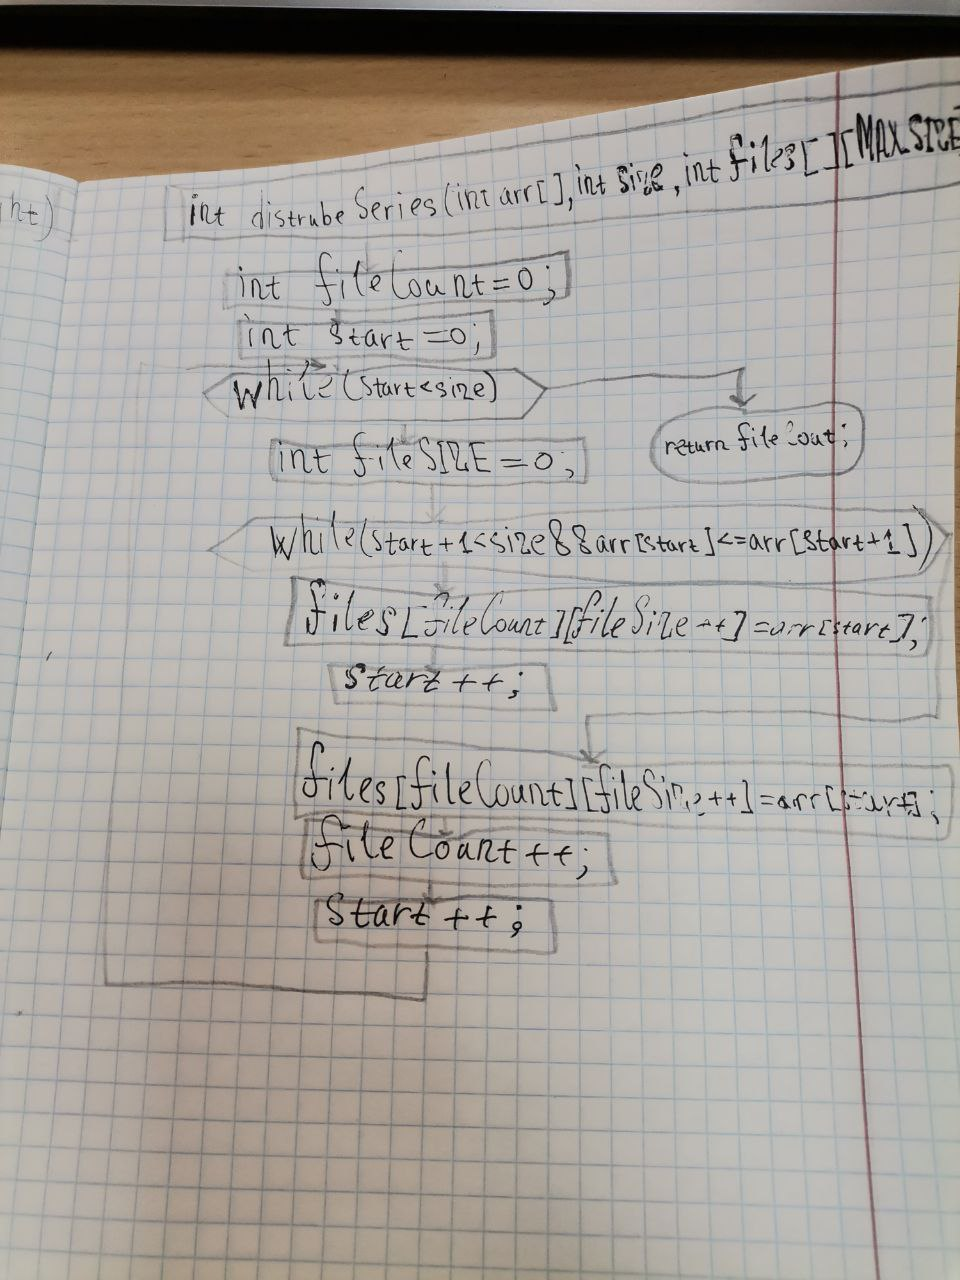 ht)
int distrubeSeries(int arr[], int size, int files[][MAX_SIZE
int fileCount=0;
int start=0;
while(start<size)
return fileCout;
int fileSIZE=0;
while(start+1<size&&arr[start]<=arr[start+1])
files[fileCount][fileSize++]=arr[start];
start++;
files[fileCount][fileSize++]=arr[start];
fileCount++;
start++;